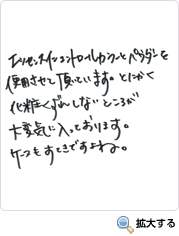 エッセンスインコントロールカラーとパウダーを
使用させて頂いています。とにかく
化粧くずれしないところが
大変気に入っております。
ケースもすてきですよね。
拡大する